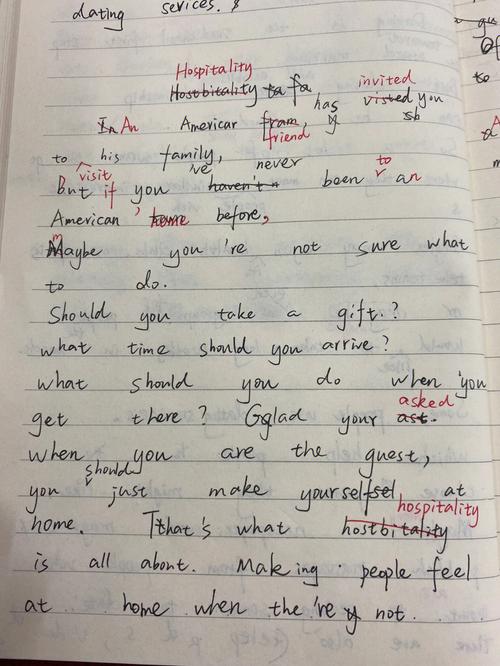 dating sevices.
Hospitality invited
Hostbitality ta fa has visted you
In An American fram, y sb
friend
to visit his family,
But if you 've haven't n never been to an
American' home before,
Maybe you 're not sure what
to do.
Should you take a gift.?
what time should you arrive?
what should you do when you
get there? Gglad your ast. asked
when you are the guest,
you should just make yourselfsel at
home. Tthat's what hostbitality hospitality
is all about. Making people feel
at home when the 're y not.